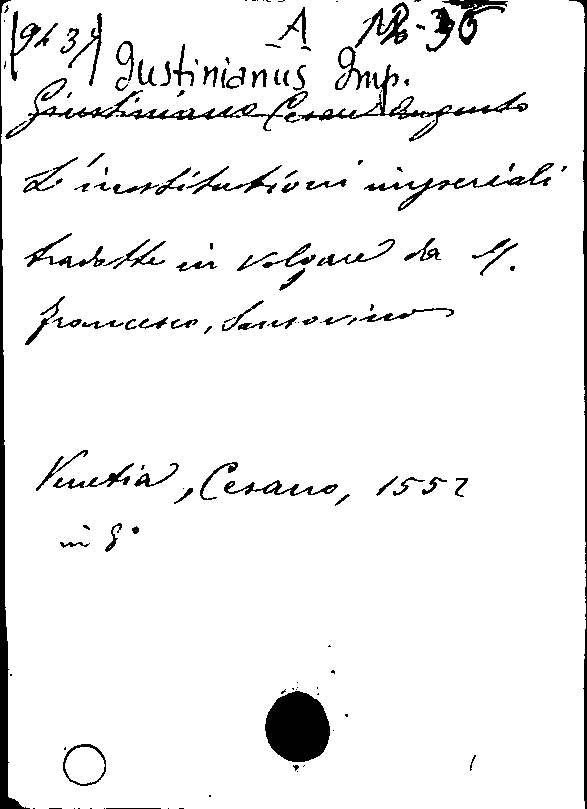 (9437) A
Justinianus Imp.
Giustiniano Cesare Augusto
L'institutioni imperiali
tradotte in volgare da M.
Francesco, Sansovino
Venetia, Cesano, 1552
in 8°